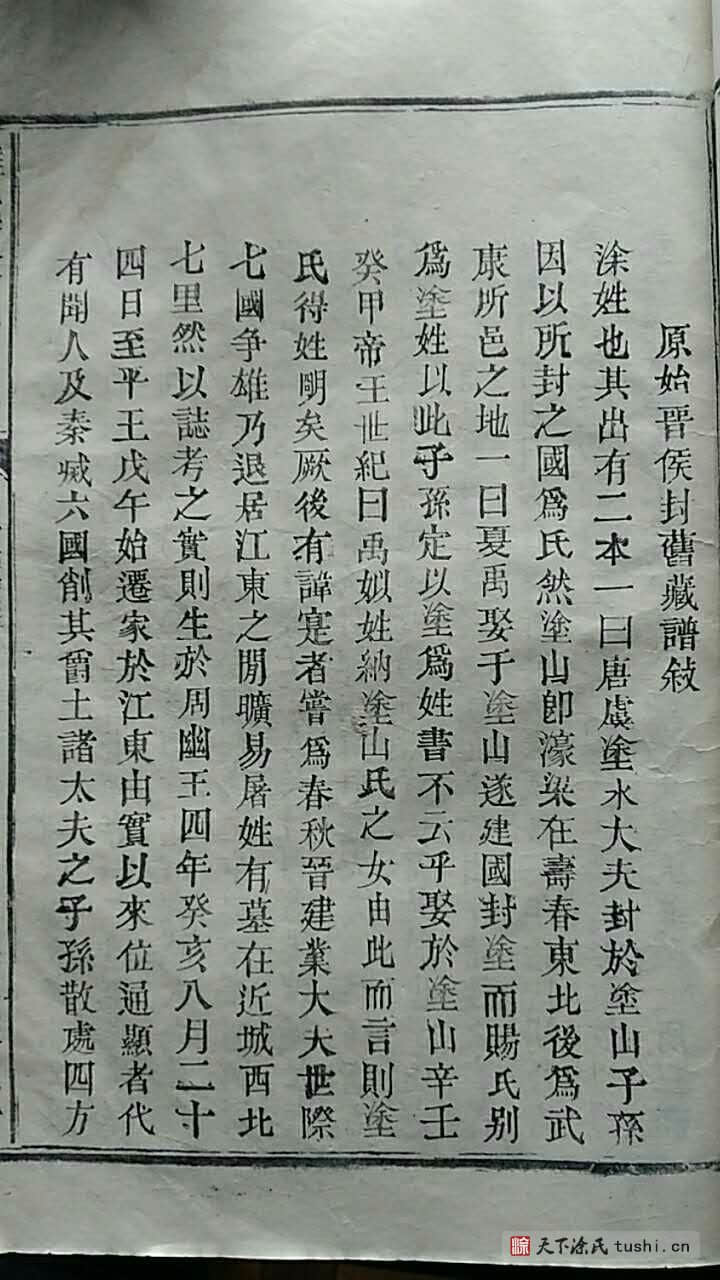 原始晉侯封舊藏譜敍
涂姓也其出有二本一曰唐虞塗水大夫封於塗山子孫
因以所封之國爲氏然塗山卽濠梁在壽春東北後爲武
康所邑之地一曰夏禹娶于塗山遂建國封塗而賜氏別
爲塗姓以此子孫定以塗爲姓書不云乎娶於塗山辛壬
癸甲帝王世紀曰禹姒姓納塗山氏之女由此而言則塗
氏得姓明矣厥後有諱寔者嘗爲春秋晉建業大夫世際
七國争雄乃退居江東之閒曠易屠姓有墓在近城西北
七里然以誌考之實則生於周幽王四年癸亥八月二十
四日至平王戊午始遷家於江東由實以來位通顯者代
有聞人及秦滅六國削其爵土諸大夫之子孫散處四方
天下涂氏 tushi.cn